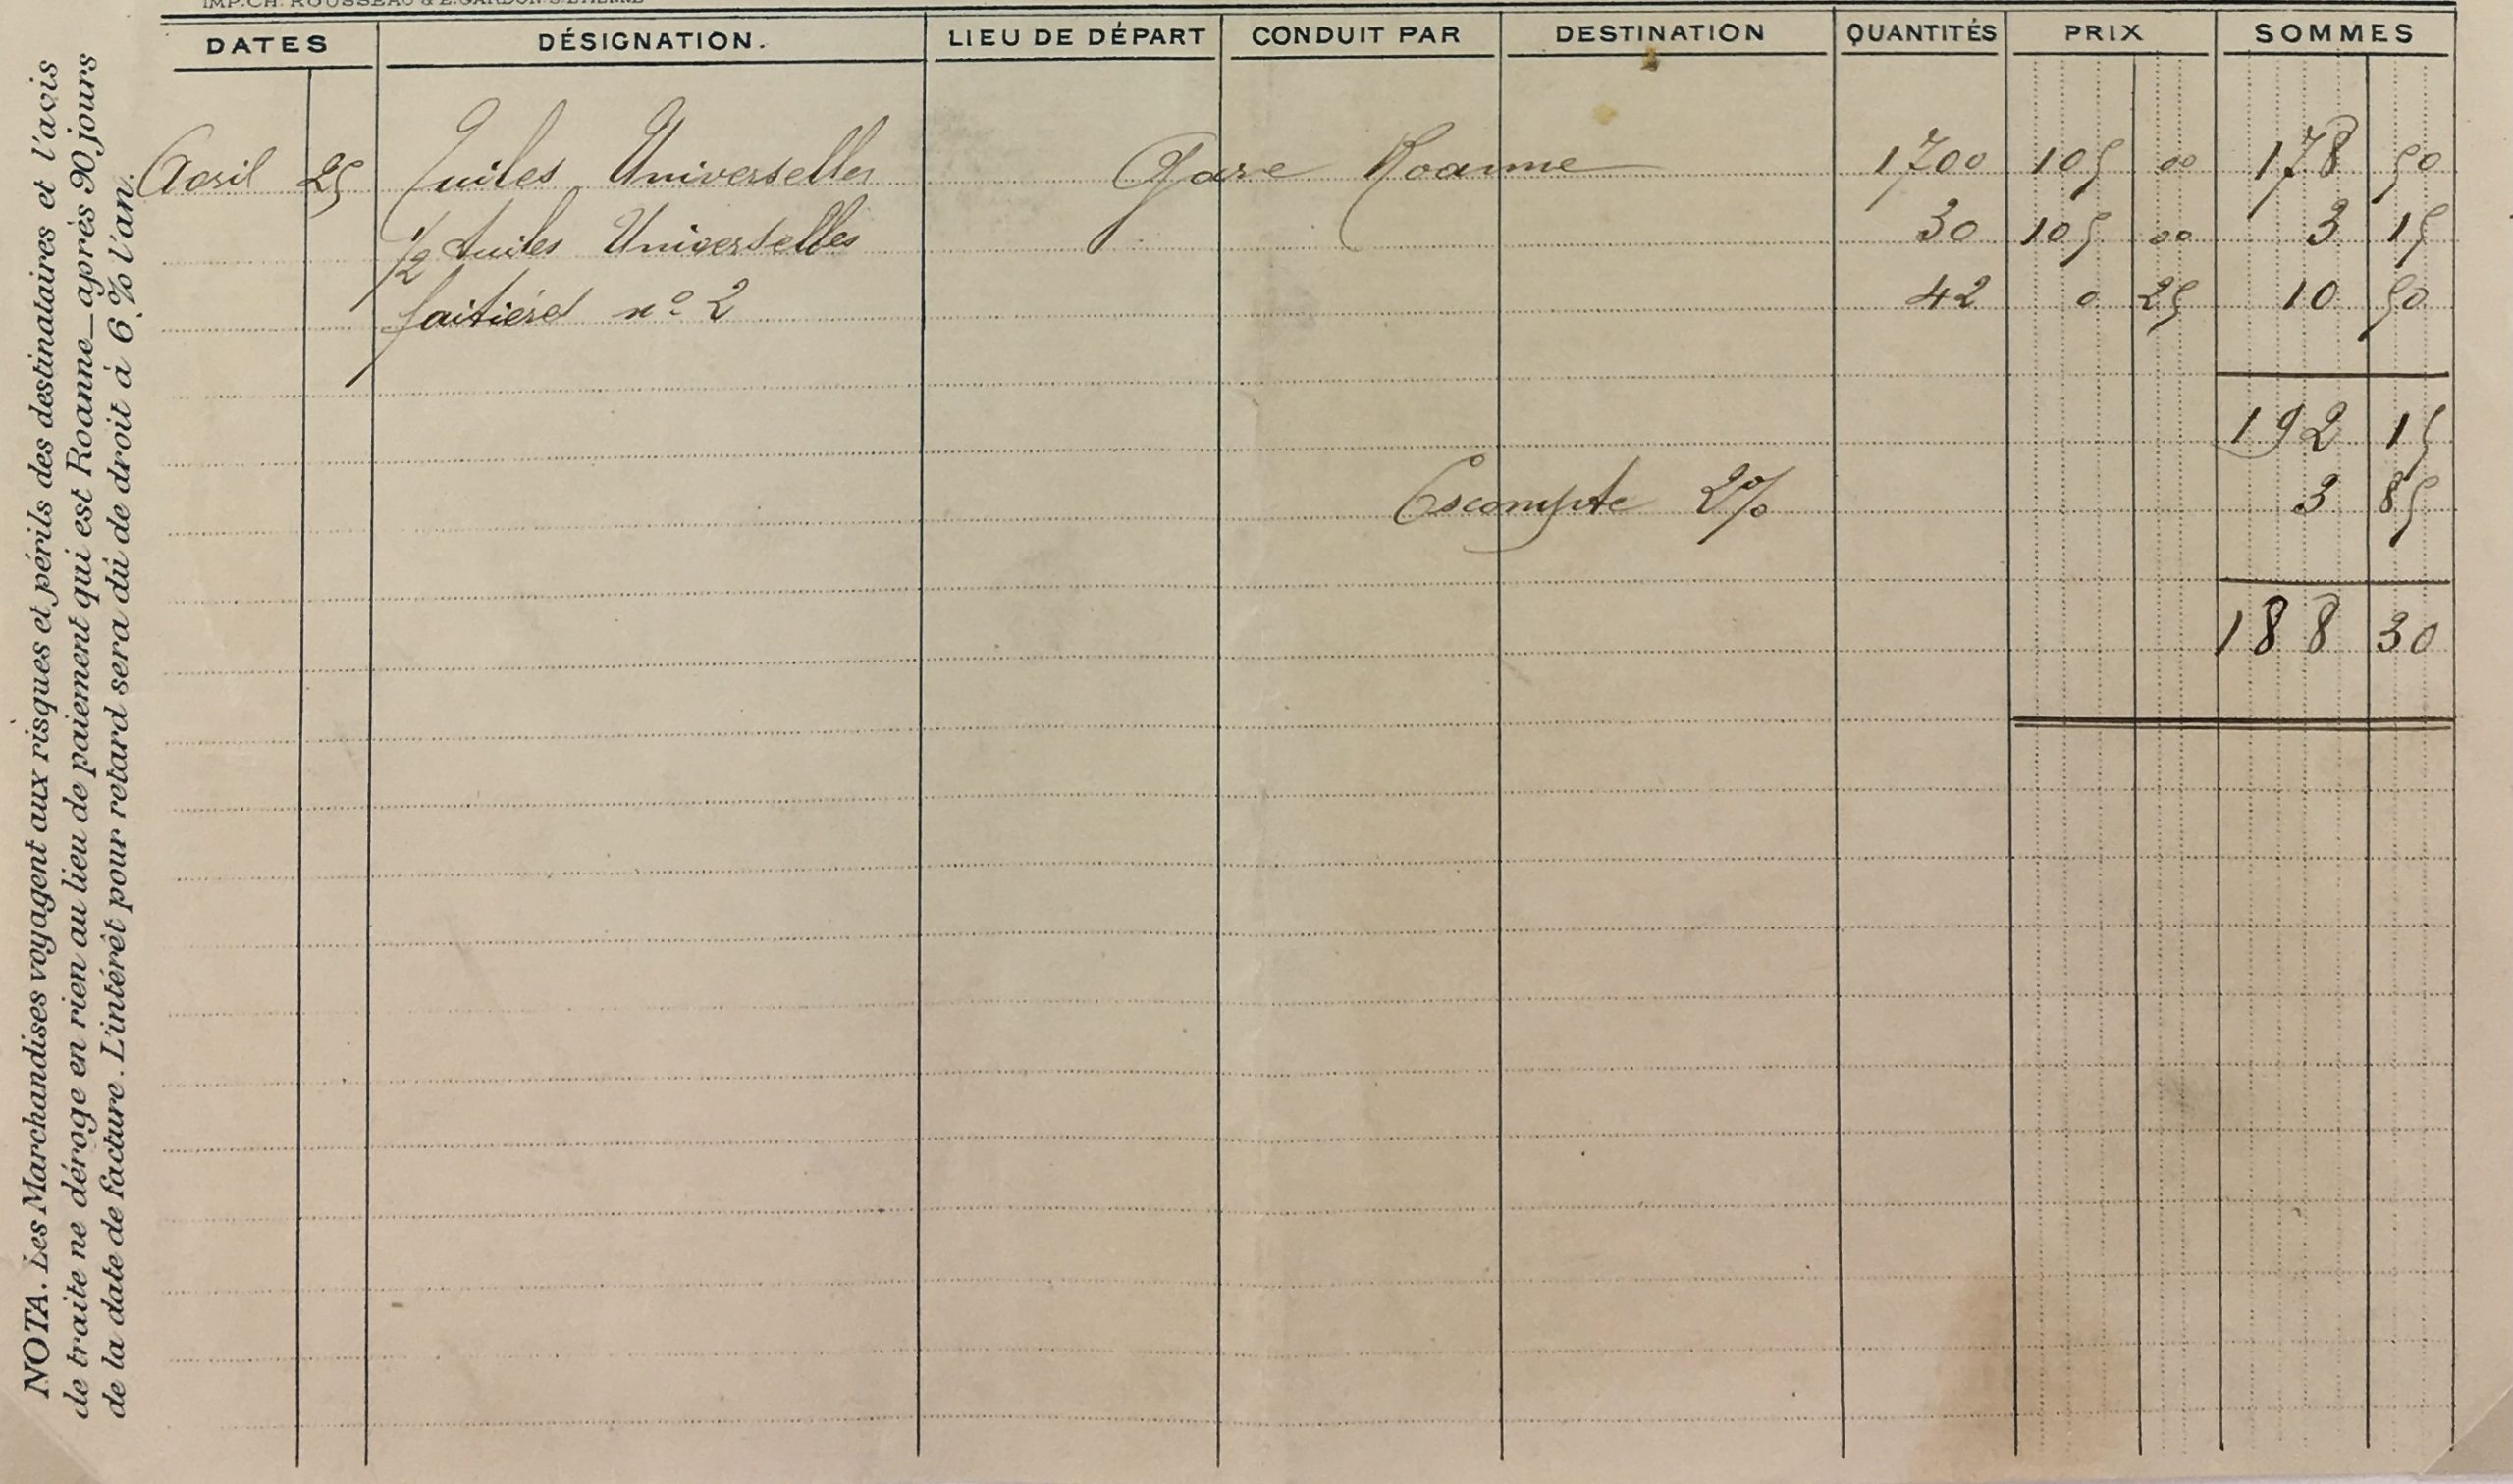 IMP. CH. ROUSSEAU & E. GARDON S-ETIENNE
DATES DÉSIGNATION. LIEU DE DÉPART CONDUIT PAR DESTINATION QUANTITÉS PRIX SOMMES
Avril 25 Tuiles Universelles Gare Roanne 1700 105 00 178 50
1/2 tuiles Universelles 30 105 00 3 15
faitières n° 2 42 0 25 10 50
192 15
Escompte 2% 3 85
188 30
NOTA. Les Marchandises voyagent aux risques et périls des destinataires et l'avis
de traite ne déroge en rien au lieu de paiement qui est Roanne_après 90 jours
de la date de facture. L'intérêt pour retard sera dû de droit à 6 % l'an.